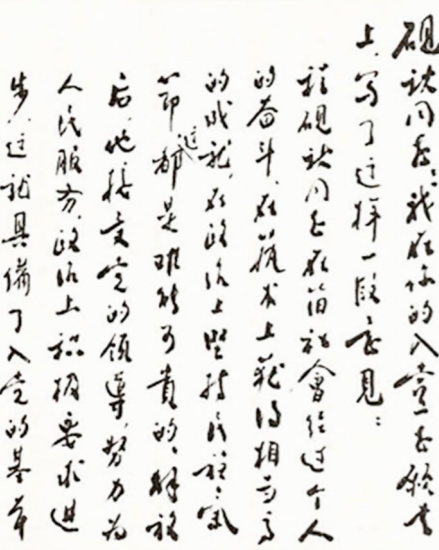 砚秋同志：我在你的入党志愿书
上，写了这样一段意见：
程砚秋同志在旧社會经过个人
的奋斗，在艺术上获得相当高
的成就，在政治上坚持民族气
节，这都是难能可貴的，解放
后，他接受党的领導，努力为
人民服务，政治上积极要求进
步，这就具備了入党的基本